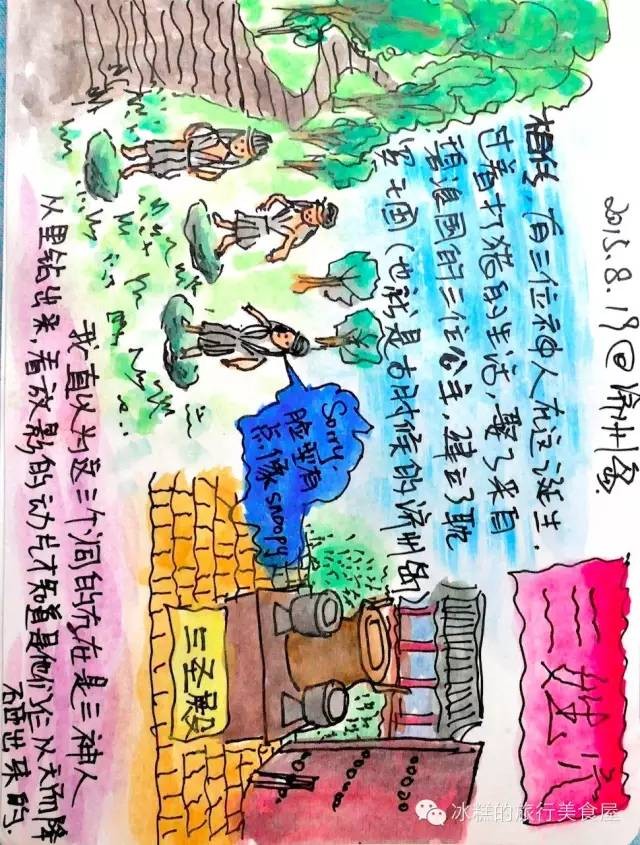 2015.8.19@济州岛
三姓穴
相传,有三位神人在这诞生,
过着打猎的生活,娶了来自
碧浪国的三位公主,建立了耽
罗国(也就是古时候的济州岛)
Sorry
脸型有
点像snoopy
三圣殿
我一直以为这三个洞的存在是三神人
从里钻出来,看放影的动片才知道是他们从天而降
出来的.
冰糕的旅行美食屋